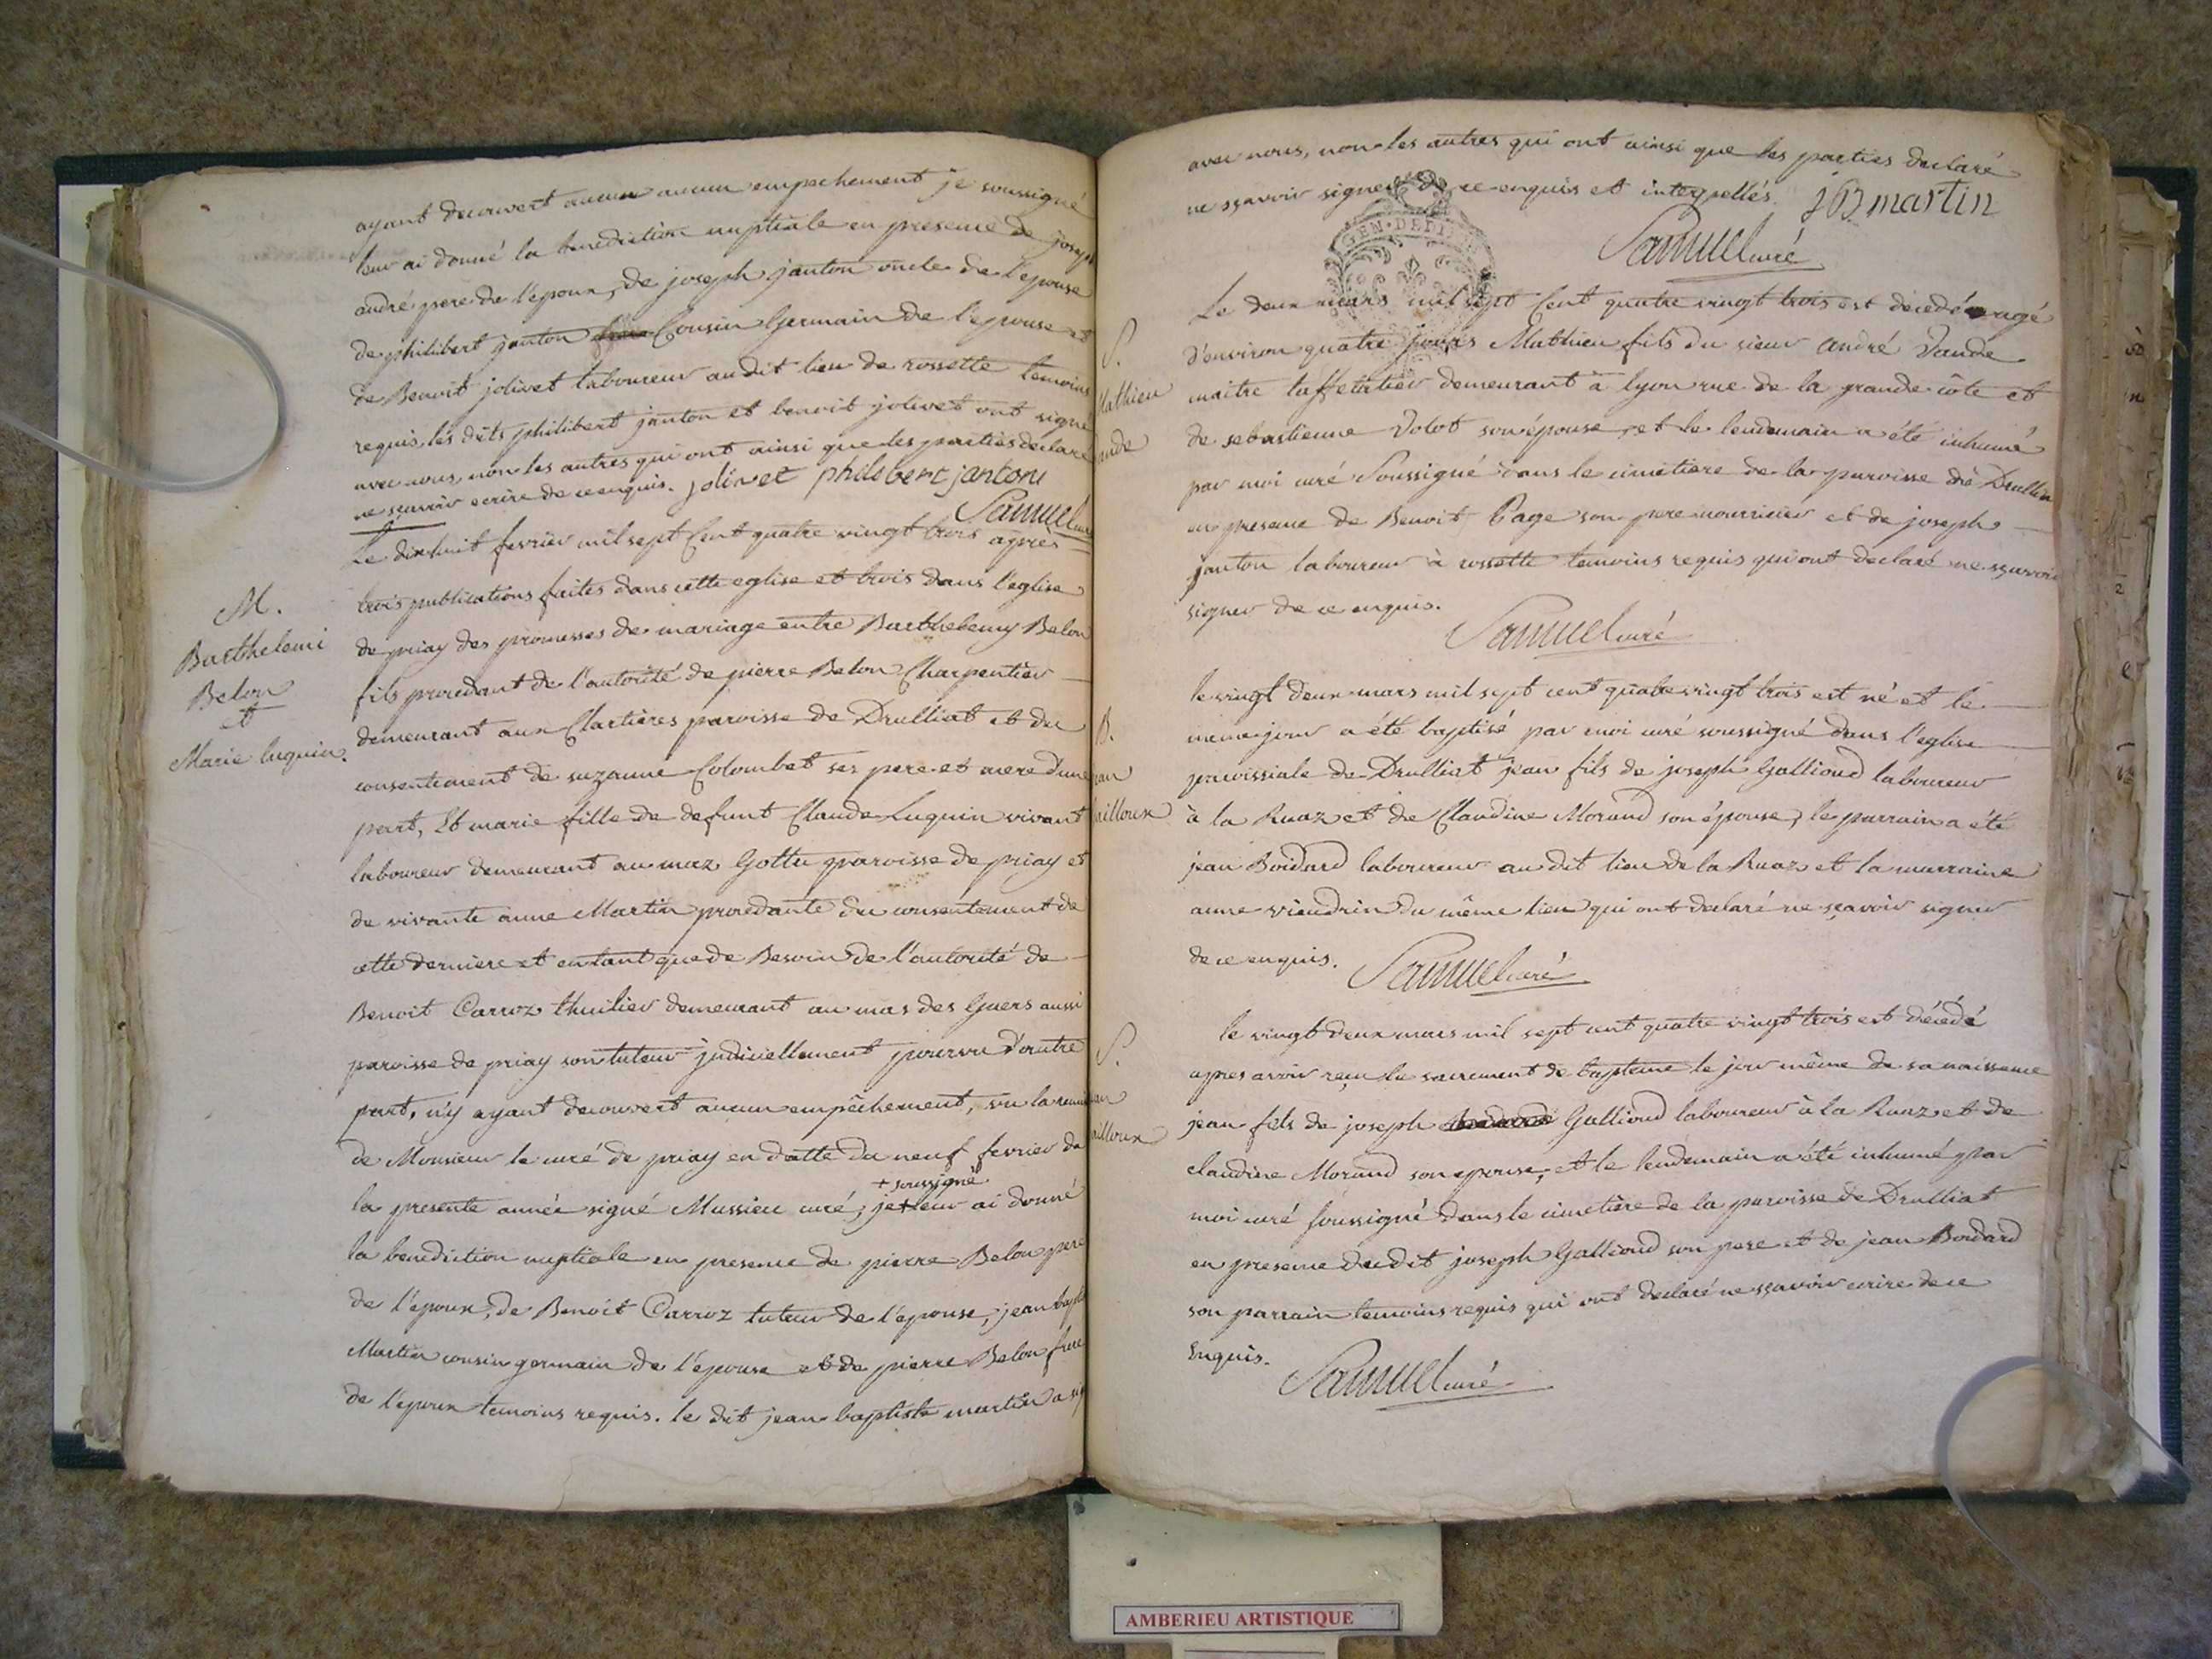 ayant decouvert aucun aucun empechement je soussigné
leur ai donné la benediction nuptiale en presence de joseph
andré pere de l'epoux, de joseph janton oncle de l'epouse
de philibert janton Cousin Germain de l'epouse et
de Benoit jolivet laboureur audit lieu de rossette temoins
requis, les dits philibert janton et benoit jolivet ont signé
avec nous, non les autres qui ont ainsi que les parties declaré
ne sçavoir ecrire de ce enquis. jolivet philibert janton
Samuel curé
M.
Barthelemi
Belon
et
Marie luquin.
Le dixhuit fevrier mil sept Cent quatre vingt trois après
trois publications faites dans cette eglise et trois dans l'eglise
de priay des promesses de mariage entre Barthelemy Belon
fils procedant de l'autorité de pierre Belon Charpentier
demeurant aux Clartières paroisse de Drulliat et du
consentement de suzanne Colombet ses pere et mere d'une
part, Et marie fille de defunt Claude Luquin vivant
laboureur demeurant au maz Gottu paroisse de priay et
de vivante anne Martin procedante du consentement de
cette derniere et en tant que de Besoin de l'autorité de
Benoit Carroz thuilier demeurant au mas des Guers aussi
paroisse de priay son tuteur judiciellement pourvu d'autre
part, n'y ayant decouvert aucun empêchement, vu la remise
de Monsieur le curé de priay en datte du neuf fevrier de
+ soussigné
la presente année signé Mussieu curé, je + leur ai donné
la benediction nuptiale en presence de pierre Belon pere
de l'epoux, de Benoit Carroz tuteur de l'epouse, jean baptiste
Martin cousin germain de l'epouse et de pierre Belon frere
de l'epoux temoins requis. le dit jean baptiste martin a sig
avec nous, non les autres qui ont ainsi que les parties declaré
ne sçavoir signer de ce enquis et interpellés. JB martin
GEN. DE DI
Samuel curé
S.
Mathieu
ande
Le deux mars mil sept Cent quatre vingt trois est decedé agé
d'environ quatre jours Mathieu fils du sieur andré Vande
maitre taffetatier demeurant à lyon rue de la grande côte et
de sebastienne Volot son épouse, et le lendemain a été inhumé
par moi curé Soussigné dans le cimetiere de la paroisse de Drulliat
en presence de Benoit Page son pere nourricier et de joseph
janton laboureur à rossette temoins requis qui ont declaré ne sçavoir
signer de ce enquis.
Samuel curé
B.
ean
ailloux
le vingt deux mars mil sept cent quatre vingt trois est né et le
meme jour a été baptisé par moi curé soussigné dans l'eglise
paroissiale de Drulliat jean fils de joseph Gallioud laboureur
à la Ruaz et de Claudine Morand son épouse, le parrain a été
jean Boidard laboureur audit lieu de la Ruaz et la marraine
anne viendrin du même lieu qui ont declaré ne sçavoir signer
de ce enquis.
Samuel curé
S.
ean
ailloux
le vingt deux mars mil sept cent quatre vingt trois est décédé
apres avoir reçu le sacrement de baptême le jour même de sa naissance
jean fils de joseph Gallioud laboureur à la Ruaz et de
claudine Morand son epouse, et le lendemain a été inhumé par
moi curé soussigné dans le cimetière de la paroisse de Drulliat
en presence dudit joseph Gallioud son pere et de jean Boidard
son parrain temoins requis qui ont declaré ne sçavoir ecrire de ce
Enquis.
Samuel curé
AMBERIEU ARTISTIQUE